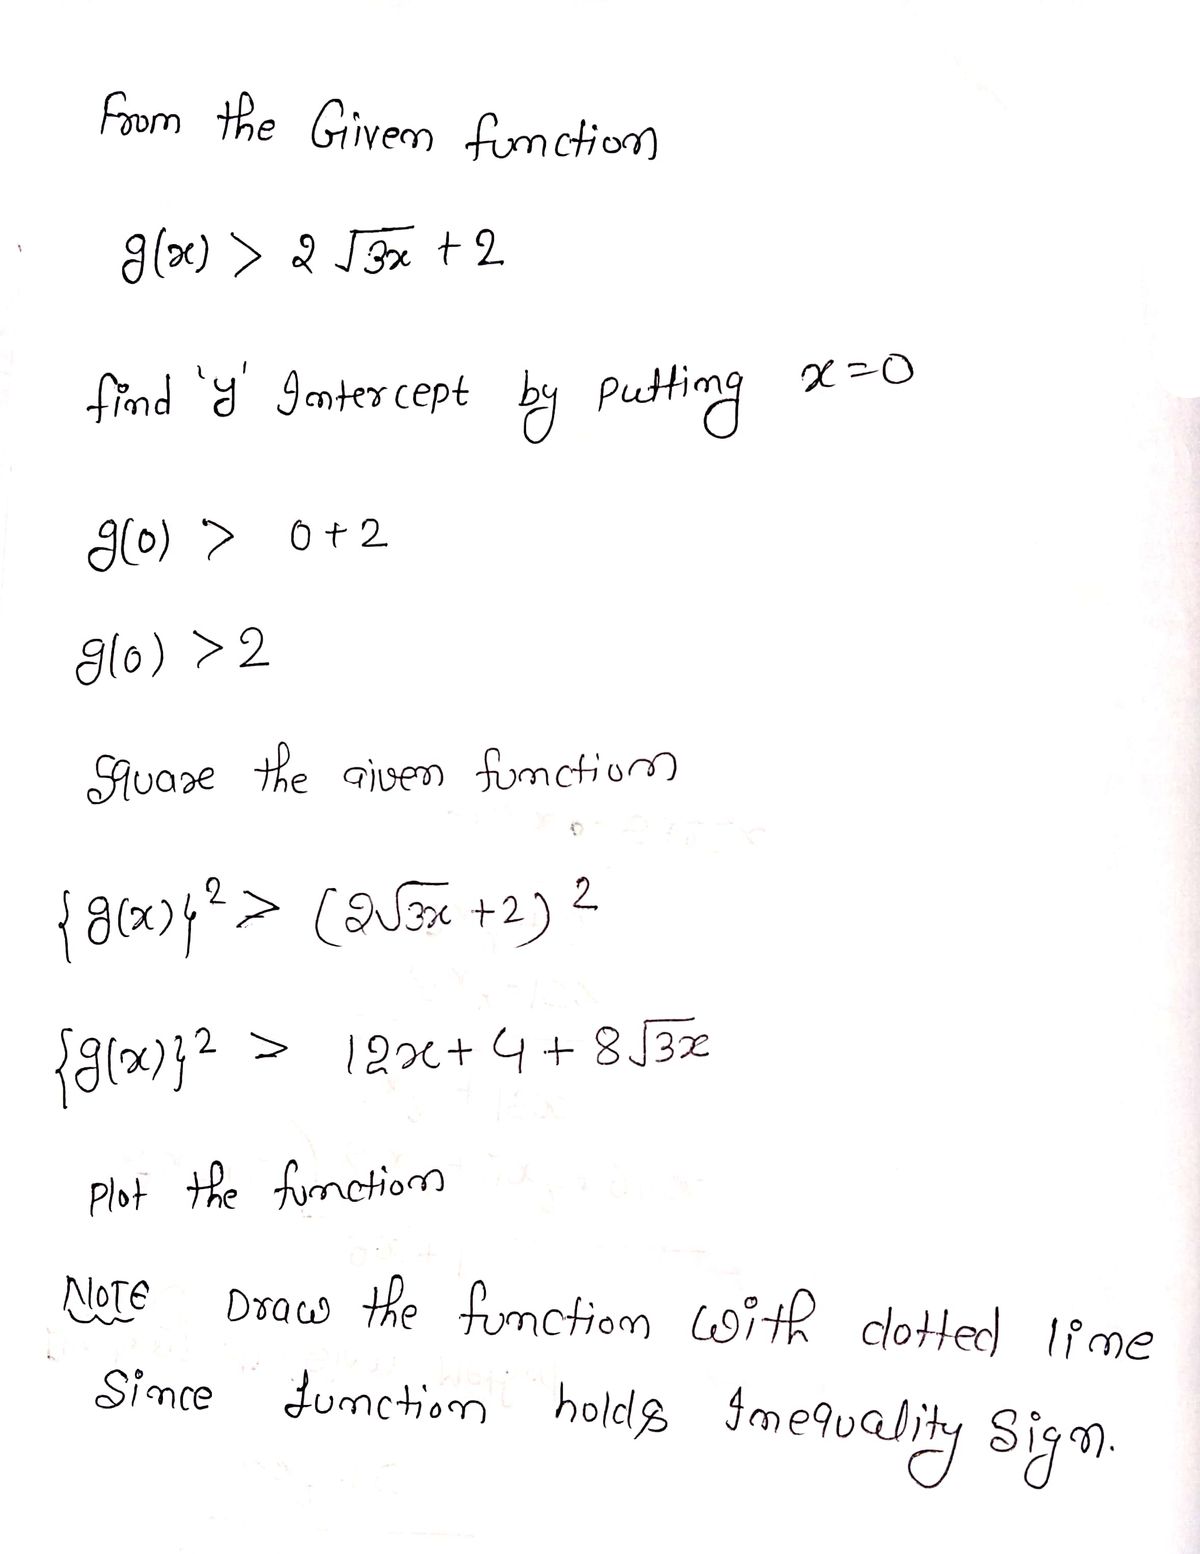 From the Given function
g(x) > 2 √3x + 2
find 'y' Intercept by putting x=0
g(0) > 0+2
g(0) >2
Square the given function
{g(x)}² > (2√3x +2)²
{g(x)}² > 12x+4+8√3x
Plot the function
NOTE Draw the function with dotted line
Since function holds Inequality Sign.